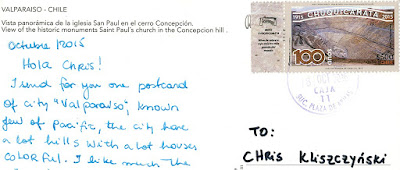 VALPARAISO - CHILE
Vista panorámica de la iglesia San Paul en el cerro Concepción.
View of the historic monuments Saint Paul's church in the Concepcion hill .
Octubre 2015
Hola Chris!
I send for you one postcard
of city "Valparaiso", known
few of Pacific, the city have
a lot hills with a lot houses
colorful. I like much the
1915 CHUQUICAMATA 2015
100 años
CHILE
CAJA
11
SUC. PLAZA DE
TO:
CHRis Kliszczyński